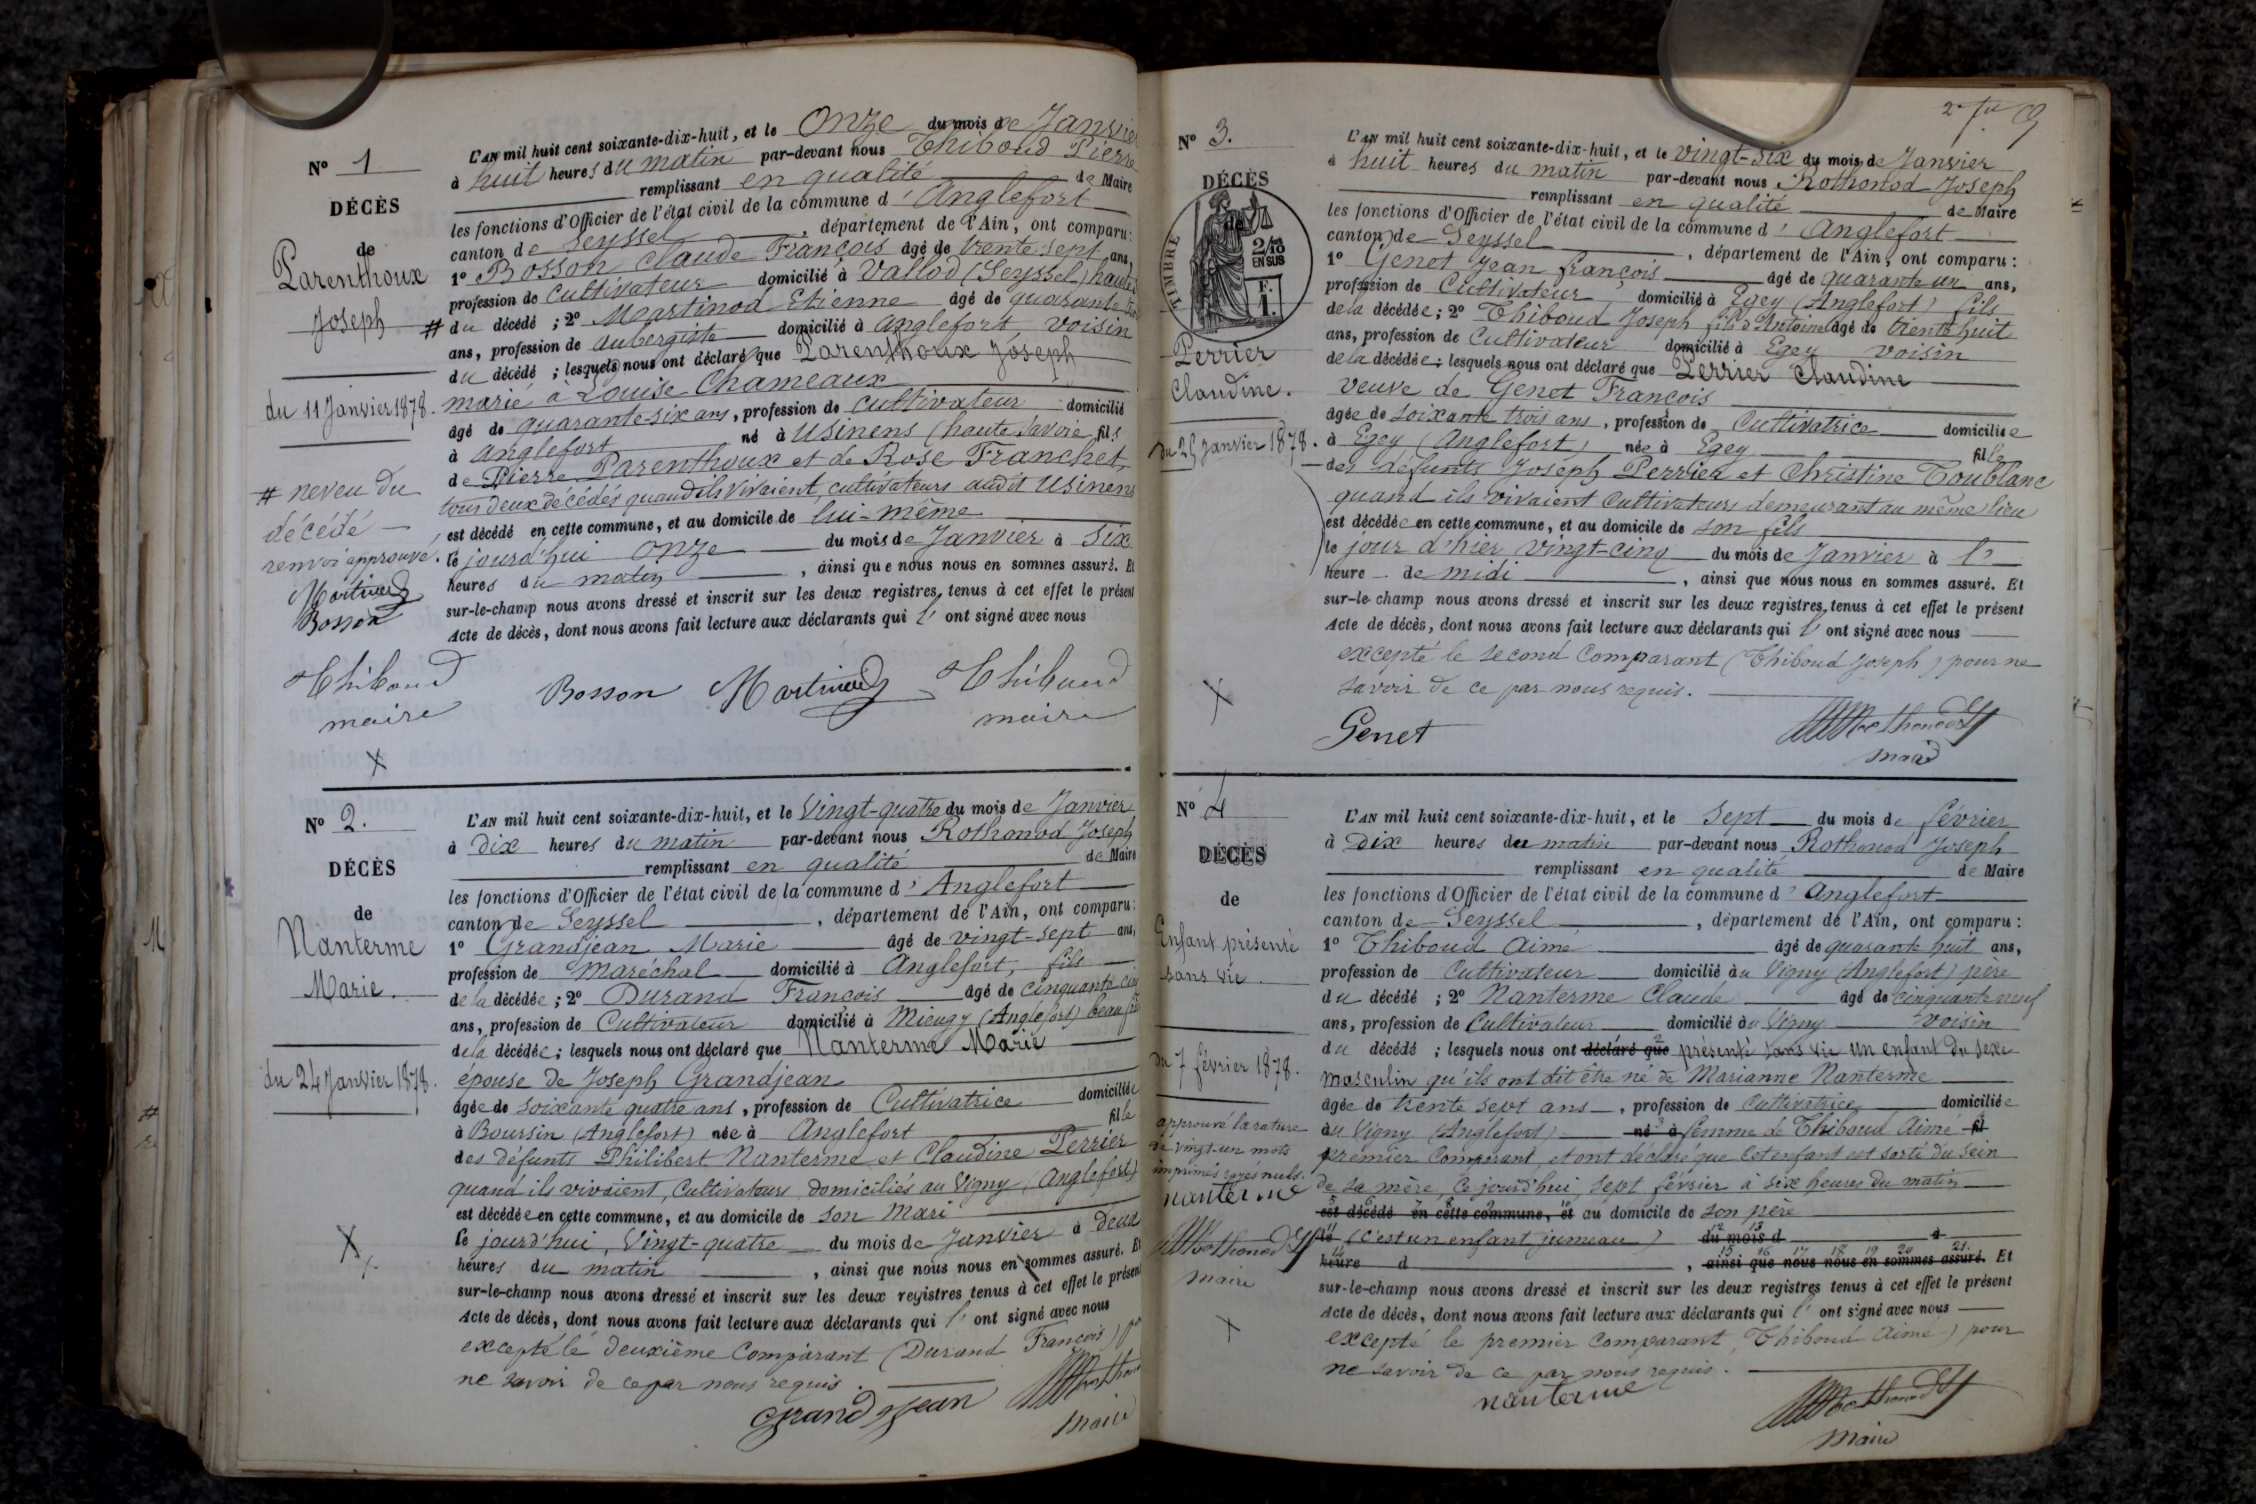 N° 1
DÉCÈS
de
Parenthoux
Joseph
du 11 Janvier 1878.
# neveu du
décédé —
renvoi approuvé.
Martinod
Bosson
L'AN mil huit cent soixante-dix-huit, et le Onze du mois de Janvier
à huit heures du matin par-devant nous Thiboud Pierre
remplissant en qualité de Maire
les fonctions d'Officier de l'état civil de la commune d'Anglefort
canton de Seyssel, département de l'Ain, ont comparu:
1° Bosson Claude François âgé de trente sept ans,
profession de Cultivateur domicilié à Vallod (Seyssel) haute
# du décédé ; 2° Martinod Etienne âgé de quarante
ans, profession de aubergiste domicilié à anglefort, voisin
du décédé ; lesquels nous ont déclaré que Parenthoux Joseph
marié à Louise Chameaux
âgé de quarante-six ans, profession de cultivateur domicilié
à anglefort né à Usinens (haute Savoie) fils
de Pierre Parenthoux et de Rose Franchet,
tous deux décédés quand ils vivaient, cultivateurs audit Usinens
est décédé en cette commune, et au domicile de lui-même
le jourd'hui onze du mois de Janvier à six
heures du matin, ainsi que nous nous en sommes assuré. Et
sur-le-champ nous avons dressé et inscrit sur les deux registres tenus à cet effet le présent
Acte de décès, dont nous avons fait lecture aux déclarants qui l'ont signé avec nous
Thiboud Bosson Martinod Thiboud
maire maire
N° 2.
DÉCÈS
de
Nanterme
Marie.
du 24 Janvier 1878.
L'AN mil huit cent soixante-dix-huit, et le Vingt-quatre du mois de Janvier
à Dix heures du matin par-devant nous Rothonod Joseph
remplissant en qualité de Maire
les fonctions d'Officier de l'état civil de la commune d'Anglefort
canton de Seyssel, département de l'Ain, ont comparu:
1° Grandjean Marie âgé de vingt-sept ans,
profession de Maréchal domicilié à Anglefort, fils
de la décédée ; 2° Durand François âgé de cinquante cinq
ans, profession de Cultivateur domicilié à Mieugy (Anglefort) beau
de la décédée ; lesquels nous ont déclaré que Nanterme Marie
épouse de Joseph Grandjean
âgée de soixante quatre ans, profession de Cultivatrice domiciliée
à Boursin (Anglefort) née à Anglefort fille
des défunts Philibert Nanterme et Claudine Perrier
quand ils vivaient, Cultivateurs domiciliés au Vigny (Anglefort)
est décédée en cette commune, et au domicile de son Mari
le jourd'hui, Vingt-quatre du mois de Janvier à deux
heures du matin, ainsi que nous nous en sommes assuré. Et
sur-le-champ nous avons dressé et inscrit sur les deux registres tenus à cet effet le présent
Acte de décès, dont nous avons fait lecture aux déclarants qui l'ont signé avec nous
excepté le deuxième Comparant (Durand François)
ne savoir de ce par nous requis.
Grandjean
maire
2
N° 3.
DÉCÈS
de
TIMBRE
2/10
EN SUS
F.
1.
Perrier
Claudine.
du 25 Janvier 1878.
L'AN mil huit cent soixante-dix-huit, et le vingt-six du mois de Janvier
à huit heures du matin par-devant nous Rothonod Joseph
remplissant en qualité de Maire
les fonctions d'Officier de l'état civil de la commune d'Anglefort
canton de Seyssel, département de l'Ain, ont comparu:
1° Genet Jean françois âgé de quarante un ans,
profession de Cultivateur, domicilié à Egey (Anglefort) fils
de la décédée ; 2° Thiboud Joseph fils d'Antoine âgé de trente huit
ans, profession de Cultivateur domicilié à Egey voisin
de la décédée ; lesquels nous ont déclaré que Perrier Claudine
veuve de Genet François
âgée de soixante trois ans, profession de Cultivatrice domiciliée
à Egey (Anglefort) née à Egey fille
des défunts Joseph Perrier et Christine Toublanc
quand ils vivaient Cultivateurs demeurant au même lieu
est décédée en cette commune, et au domicile de son fils
le jour d'hier vingt-cinq du mois de Janvier à l'
heure de midi, ainsi que nous nous en sommes assuré. Et
sur-le-champ nous avons dressé et inscrit sur les deux registres tenus à cet effet le présent
Acte de décès, dont nous avons fait lecture aux déclarants qui l'ont signé avec nous
excepté le second Comparant (Thiboud Joseph) pour ne
savoir de ce par nous requis.
Genet Rothonod
maire
N° 4
DÉCÈS
de
Enfant présenté
sans vie
du 7 février 1878.
approuvé la rature
de vingt-un mots
imprimés rayés nuls.
nanterme
Rothonod
maire
L'AN mil huit cent soixante-dix-huit, et le Sept du mois de février
à Dix heures du matin par-devant nous Rothonod Joseph
remplissant en qualité de Maire
les fonctions d'Officier de l'état civil de la commune d'Anglefort
canton de Seyssel, département de l'Ain, ont comparu:
1° Thiboud Aimé âgé de quarante huit ans,
profession de Cultivateur domicilié au Vigny (Anglefort) père
du décédé ; 2° Nanterme Claude âgé de cinquante neuf
ans, profession de Cultivateur domicilié au Vigny voisin
du décédé ; lesquels nous ont déclaré que présenté sans vie un enfant du sexe
masculin qu'ils ont dit être né de Marianne Nanterme
âgée de trente sept ans, profession de Cultivatrice domiciliée
au Vigny (Anglefort) né à femme de Thiboud Aimé fil
premier Comparant, et ont déclaré que cet enfant est sorti du sein
de sa mère, ce jourd'hui, sept février à six heures du matin
est décédé en cette commune, et au domicile de son père
le (c'est un enfant jumeau) du mois d à
heure d, ainsi que nous nous en sommes assuré. Et
sur-le-champ nous avons dressé et inscrit sur les deux registres tenus à cet effet le présent
Acte de décès, dont nous avons fait lecture aux déclarants qui l'ont signé avec nous
excepté le premier Comparant, Thiboud Aimé) pour
ne savoir de ce par nous requis.
nanterme Rothonod
maire